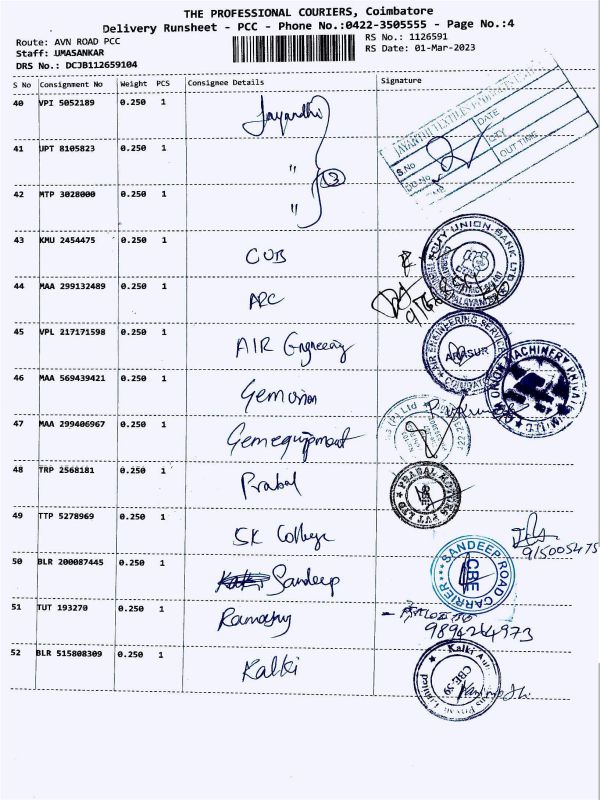 THE PROFESSIONAL COURIERS, Coimbatore
Delivery Runsheet - PCC - Phone No.:0422-3505555 - Page No.:4
Route: AVN ROAD PCC
RS No.: 1126591
Staff: UMASANKAR
RS Date: 01-Mar-2023
DRS No.: DCJB112659104
S No Consignment No Weight PCS Consignee Details Signature
40 VPI 5052189 0.250 1 Jayandhi
S.No DATE
CITY
OUT TIME
41 UPT 8105823 0.250 1 "
3
42 MTP 3028000 0.250 1 "
43 KMU 2454475 0.250 1 CUB
CITY UNION BANK LTD
44 MAA 299132489 0.250 1 APC
45 VPL 217171598 0.250 1 AIR Engineering
AIR ENGINEERING SERVICES
ARASUR
COIMBATORE
46 MAA 569439421 0.250 1 Gem Union
UNION MACHINERY PRIVATE LIMITED
47 MAA 299406967 0.250 1 Gem equipment
(P) Ltd
48 TRP 2568181 0.250 1 Prabal
PRABAL MOTORS PVT LTD
49 TTP 5278969 0.250 1 SK College
915005475
50 BLR 200087445 0.250 1 Sandeep
SANDEEP ROAD CARRIER
CBE
51 TUT 193270 0.250 1
9894244973
52 BLR 515808309 0.250 1 Kalki
Kalki
CBE-59